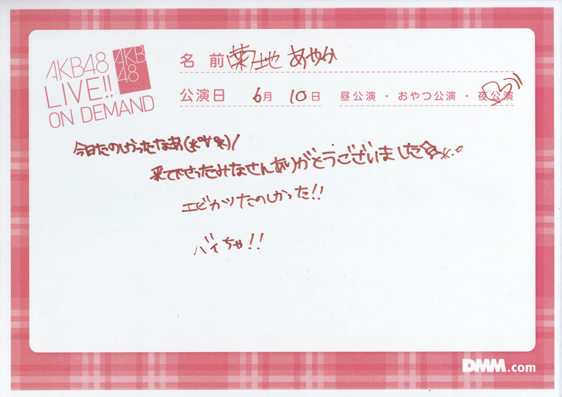 AKB48
LIVE!!
ON DEMAND
AKB
48
名 前 菊地 あやか
公演日 6月 10日 昼公演・おやつ公演・夜公演
今日たのしかったなあ(*°∀°*)/
来て下さったみなさんありがとうございました☆。
エビカツたのしかった!!
バイちゃ!!
DMM.com